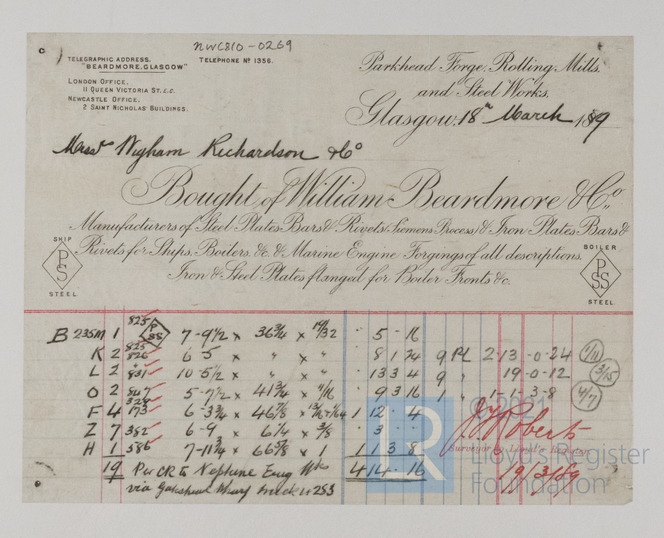 NWC810-0269
TELEGRAPHIC ADDRESS.
"BEARDMORE, GLASGOW"
TELEPHONE Nº 1356.
LONDON OFFICE,
11 QUEEN VICTORIA ST. E.C.
NEWCASTLE OFFICE,
2 SAINT NICHOLAS' BUILDINGS.
Parkhead Forge, Rolling Mills,
and Steel Works,
Glasgow, 18th March 1889
Messrs Wigham Richardson & Co
Bought of William Beardmore & Co.,
Manufacturers of Steel Plates Bars & Rivets (Siemens Process) & Iron Plates Bars &
Rivets for Ships, Boilers, &c. & Marine Engine Forgings of all descriptions.
Iron & Steel Plates flanged for Boiler Fronts &c.
SHIP
PS
STEEL
BOILER
PSS
STEEL
B 235M 1 825 7-9½ x 36¾ x 19/32 5-16
K 2 825 826 6-5 x " x " 8 1 24 9 PL 2-13-0-24 9/11
L 2 831 10-5½ x " x " 13 3 4 9 " 19-0-12 3/15
O 2 847 5-7½ x 41¾ x 11/16 9 3 16 1 " 1-1-3-8 4/7
F 4 173 6-3¾ x 46⅞ x 1 12 4
Z 7 382 6-9 x 6¼ x ⅜ 3
H 1 586 7-11¾ x 66⅝ x 1 1 1 3 8
19 Per CR to Neptune Eng Wks 4 14 16
via Gateshead Wharf truck 283
J T Roberts
Surveyor to Lloyd's Register
19/3/89
© 2021
LR
Lloyd's Register
Foundation